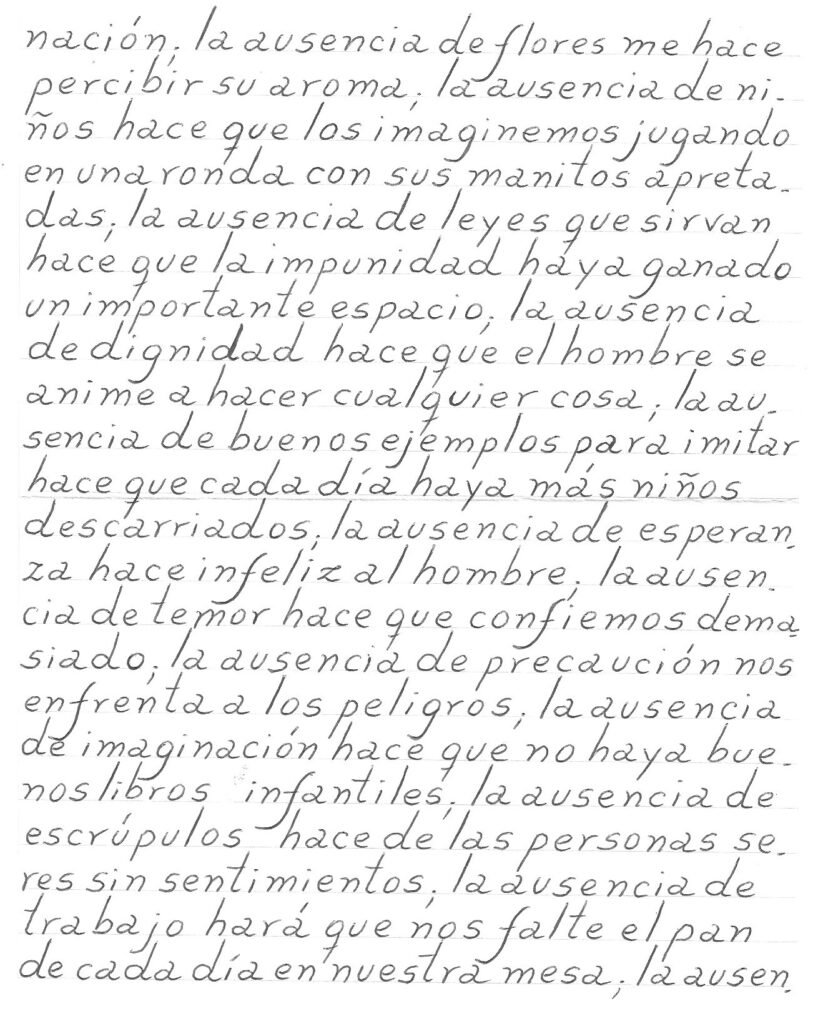 nación; la ausencia de flores me hace
percibir su aroma; la ausencia de ni-
ños hace que los imaginemos jugando
en una ronda con sus manitos apreta-
das; la ausencia de leyes que sirvan
hace que la impunidad haya ganado
un importante espacio; la ausencia
de dignidad hace que el hombre se
anime a hacer cualquier cosa; la au-
sencia de buenos ejemplos para imitar
hace que cada día haya más niños
descarriados; la ausencia de esperan-
za hace infeliz al hombre; la ausen-
cia de temor hace que confiemos dema-
siado; la ausencia de precaución nos
enfrenta a los peligros; la ausencia
de imaginación hace que no haya bue-
nos libros infantiles; la ausencia de
escrúpulos hace de las personas se-
res sin sentimientos; la ausencia de
trabajo hará que nos falte el pan
de cada día en nuestra mesa; la ausen-